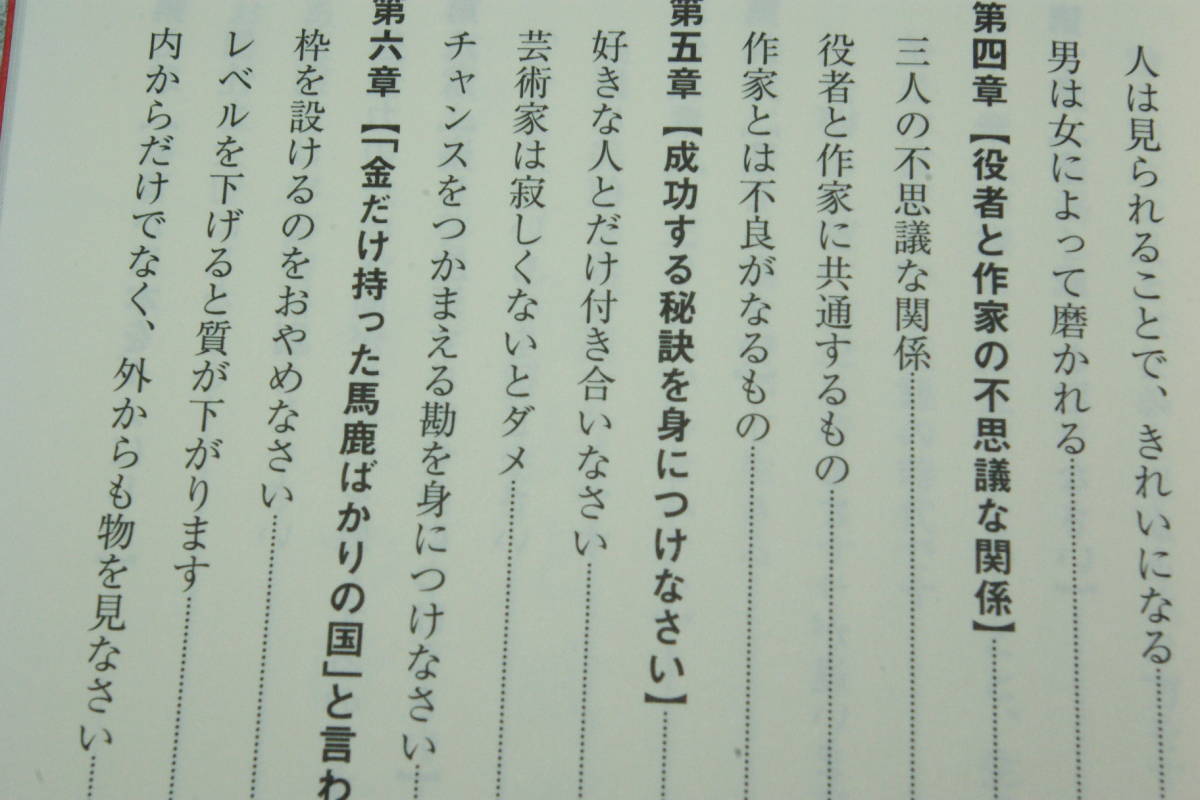 人は見られることで、きれいになる
男は女によって磨かれる
第四章【役者と作家の不思議な関係】
三人の不思議な関係
役者と作家に共通するもの
作家とは不良がなるもの
第五章【成功する秘訣を身につけなさい】
好きな人とだけ付き合いなさい
芸術家は寂しくないとダメ
チャンスをつかまえる勘を身につけなさい
第六章【「金だけ持った馬鹿ばかりの国」と言わ
枠を設けるのをおやめなさい
レベルを下げると質が下がります
内からだけでなく、外からも物を見なさい